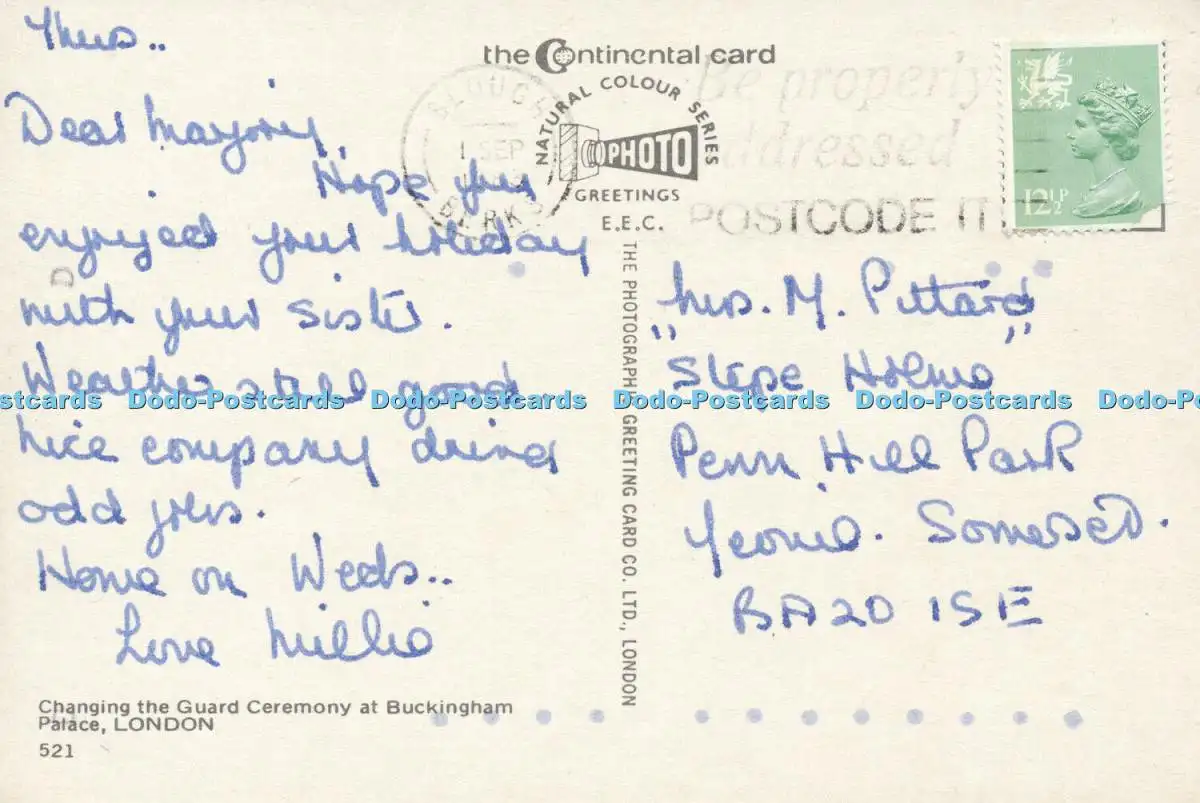 Thurs..
Dear Marjory,
Hope you
enjoyed your holiday
with your sister.
Weather still good
nice company doing
odd jobs.
Home on Weds..
Love Millie
Changing the Guard Ceremony at Buckingham
Palace, LONDON
521
the Continental card
NATURAL COLOUR SERIES
PHOTO
GREETINGS
E.E.C.
THE PHOTOGRAPHIC GREETING CARD CO. LTD., LONDON
SLOUGH
1 SEP
BERKS
Be properly
addressed
POSTCODE IT
12½P
Mrs. M. Pittard
"Stepe Holme"
Penn Hill Park
Yeovil. Somerset.
BA20 1SE
Dodo-Postcards Dodo-Postcards Dodo-Postcards Dodo-Postcards